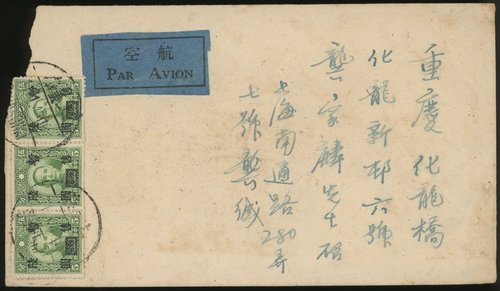 重慶 化龍橋
化龍新邨六號
龔家麟先生啟
上海南通路280弄
七號龔緘
空航
PAR AVION